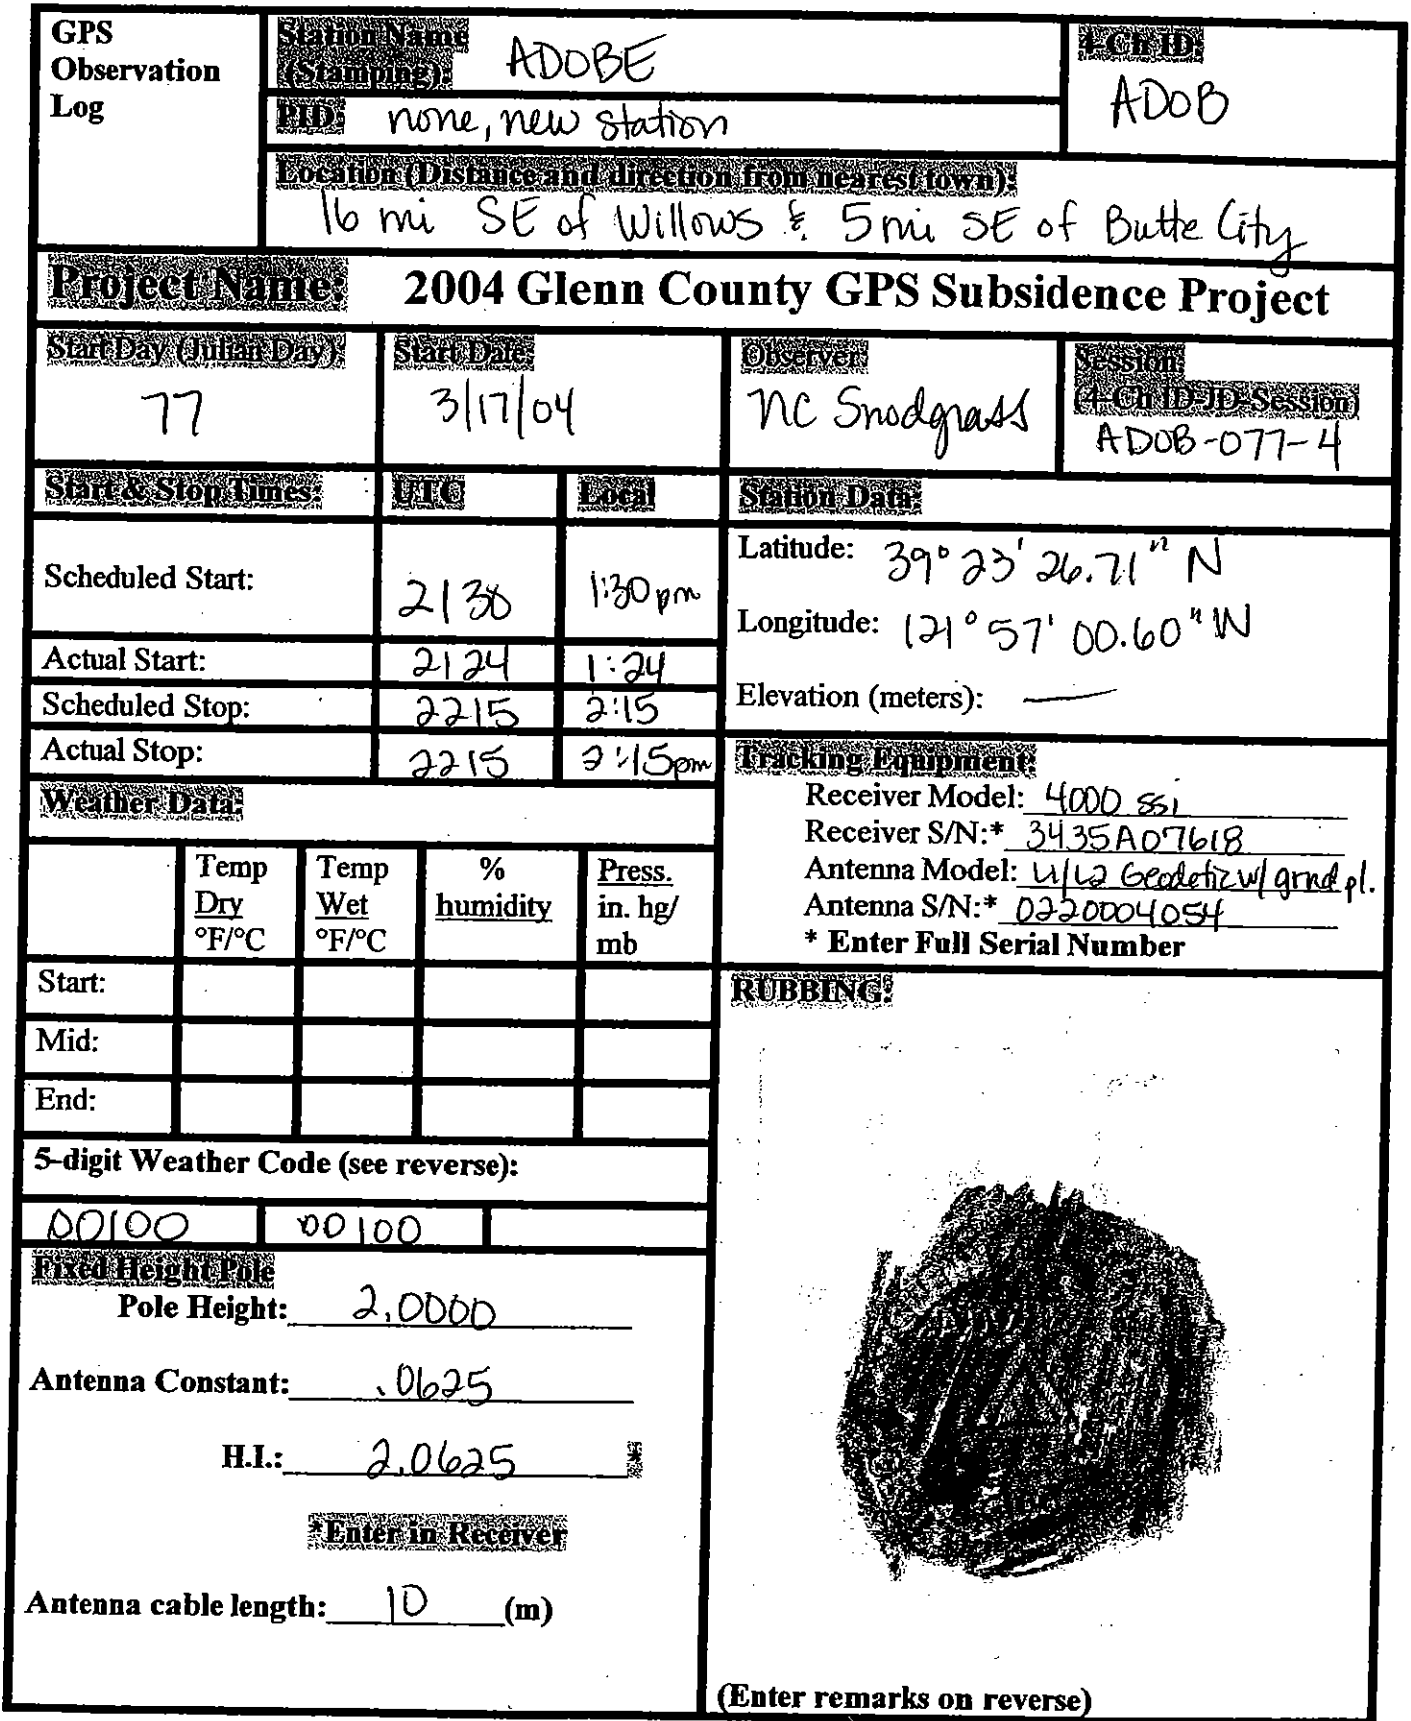 GPS
Observation
Log
Station Name
(Stamping): ADOBE
4-Ch ID:
ADOB
PID: none, new station
Location (Distance and direction from nearest town):
16 mi SE of Willows & 5 mi SE of Butte City
Project Name: 2004 Glenn County GPS Subsidence Project
Start Day (Julian Day):
77
Start Date:
3/17/04
Observer:
NC Snodgrass
Session:
(4-Ch ID-JD-Session)
ADOB-077-4
Start & Stop Times: UTC Local
Scheduled Start: 2130 1:30pm
Actual Start: 2124 1:24
Scheduled Stop: 2215 2:15
Actual Stop: 2215 2:15pm
Station Data:
Latitude: 39° 23' 26.71" N
Longitude: 121° 57' 00.60" W
Elevation (meters): —
Tracking Equipment:
Receiver Model: 4000 ssi
Receiver S/N:* 3435A07618
Antenna Model: L1/L2 Geodetic w/ grnd pl.
Antenna S/N:* 0220004054
* Enter Full Serial Number
Weather Data:
Temp
Dry
°F/°C
Temp
Wet
°F/°C
%
humidity
Press.
in. hg/
mb
Start:
Mid:
End:
5-digit Weather Code (see reverse):
00100 00100
Fixed Height Pole
Pole Height: 2.0000
Antenna Constant: .0625
H.I.: 2.0625 *
*Enter in Receiver
Antenna cable length: 10 (m)
RUBBING:
(Enter remarks on reverse)